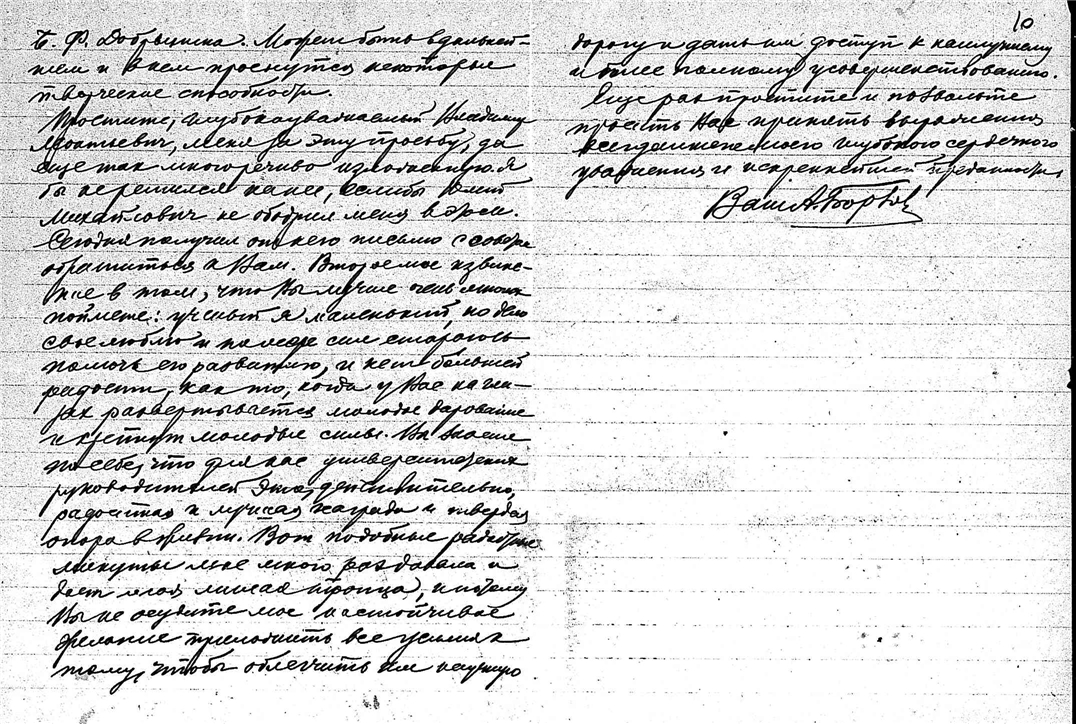 Б. Ф. Добрынина. Может быть в дальней-
шем и в нем проснутся некоторые
творческие способности.
Простите, глубокоуважаемый Владимир
Леонтьевич, меня за эту просьбу, да
еще так многоречиво изложенную. Я
бы не решился на нее, если бы
Михайлович не ободрил меня в этом.
Сегодня получил от него письмо с советом
обратиться к Вам. Второе мое извине-
ние в том, что Вы лучше очень многих
поймете: ученый я маленький, но дело
свое люблю и по мере сил стараюсь
помочь его развитию, и нет большей
радости, как то, когда у Вас на гла-
зах развертывается молодое дарование
и крепнут молодые силы. Вы знаете
по себе, что для нас университетских
руководителей это, действительно,
радостная и лучшая награда и твердая
опора в жизни. Вот подобные радостные
минуты мне много раз давала и
дает моя милая троица, и потому
Вы не осудите мое настойчивое
желание приложить все усилия к
тому, чтобы облегчить им научную
10
дорогу и дать им доступ к наилучшему
и более полному усовершенствованию.
Еще раз простите и позвольте
просить Вас принять выражения
всегдашнего моего глубокого сердечного
уважения и искреннейшей преданности.
Ваш А. Борзов